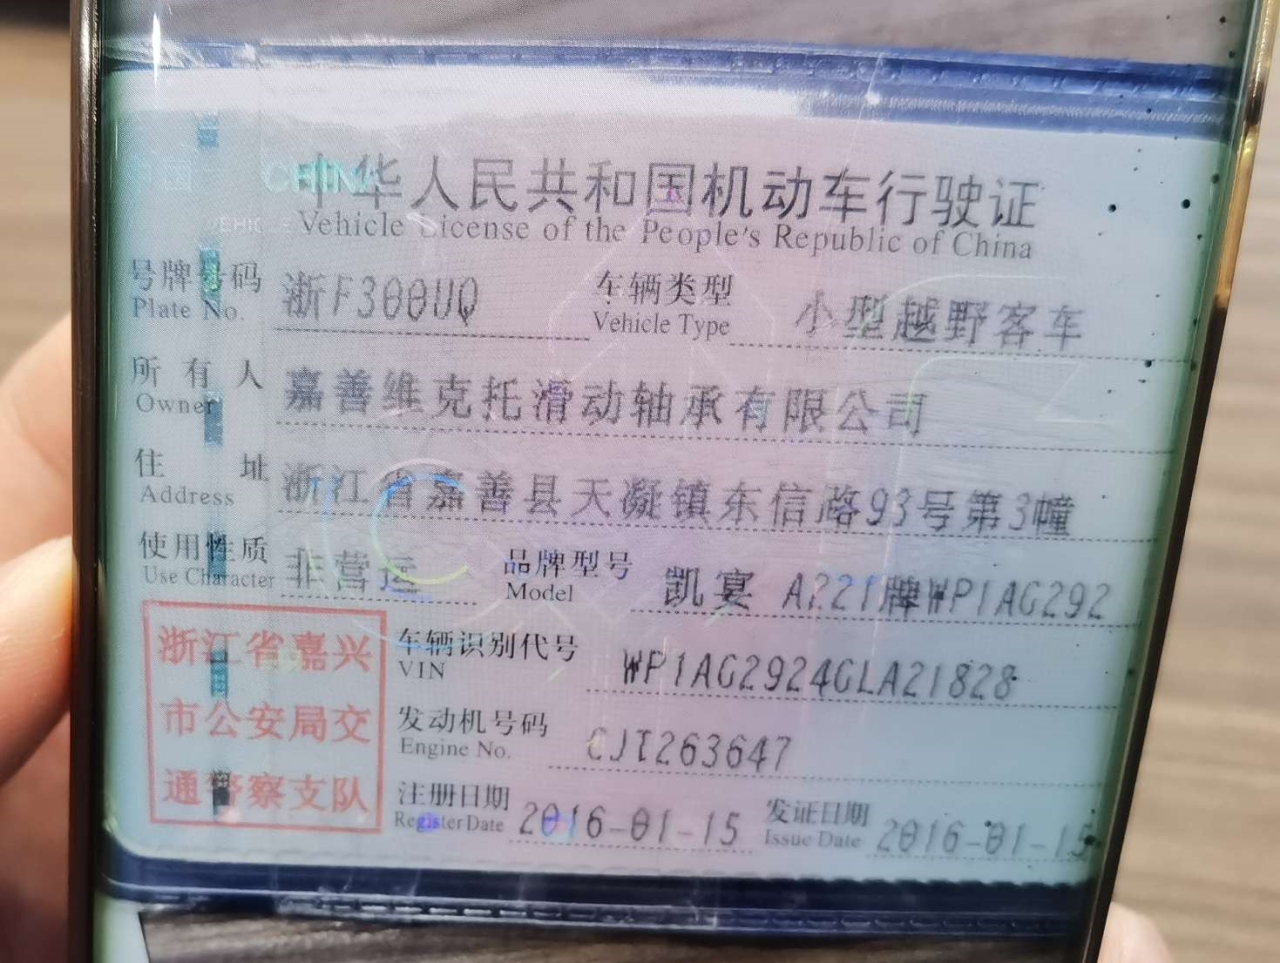 中国 CHINA
中华人民共和国机动车行驶证
Vehicle License of the People's Republic of China
号牌号码 浙F300UQ 车辆类型 小型越野客车
Plate No. Vehicle Type
所有人 嘉善维克托滑动轴承有限公司
Owner
住址 浙江省嘉善县天凝镇东信路93号第3幢
Address
使用性质 非营运 品牌型号 凯宴 A221牌WP1AG292
Use Character Model
浙江省嘉兴
市公安局交
通警察支队
车辆识别代号 WP1AG2924GLA21828
VIN
发动机号码 CJT263647
Engine No.
注册日期 2016-01-15 发证日期 2016-01-15
Register Date Issue Date